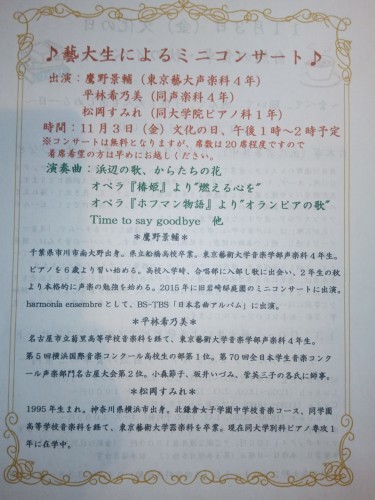 ♪藝大生によるミニコンサート♪
出演：鷹野景輔（東京藝大声楽科４年）
平林希乃美（同声楽科４年）
松岡すみれ（同大学院ピアノ科１年）
時間：１１月３日（金）文化の日、午後１時～２時予定
※コンサートは無料となりますが、席数は20席程度ですので
着席希望の方は早めにお越しください。
演奏曲：浜辺の歌、からたちの花
オペラ『椿姫』より"燃える心を"
オペラ『ホフマン物語』より"オランピアの歌"
Time to say goodbye　他
＊鷹野景輔＊
千葉県市川市南大野出身。県立船橋高校卒業。東京藝術大学音楽学部声楽科４年生。
ピアノを６歳より習い始める。高校入学時、合唱部に入部し歌に出会い、２年生の秋
より本格的に声楽の勉強を始める。2015年に旧岩崎邸庭園のミニコンサートに出演。
harmonia ensembreとして、BS-TBS「日本名曲アルバム」に出演。
＊平林希乃美＊
名古屋市立菊里高等学校音楽科を経て、東京藝術大学音楽学部声楽科４年生。
第５回横浜国際音楽コンクール高校生の部第１位。第70回全日本学生音楽コンク
ール声楽部門名古屋大会第２位。小森節子、坂井いづみ、菅英三子の各氏に師事。
＊松岡すみれ＊
1995年生まれ。神奈川県横浜市出身。北鎌倉女子学園中学校音楽コース、同学園
高等学校音楽科を経て、東京藝術大学器楽科を卒業。現在同大学別科ピアノ専攻１
年に在学中。